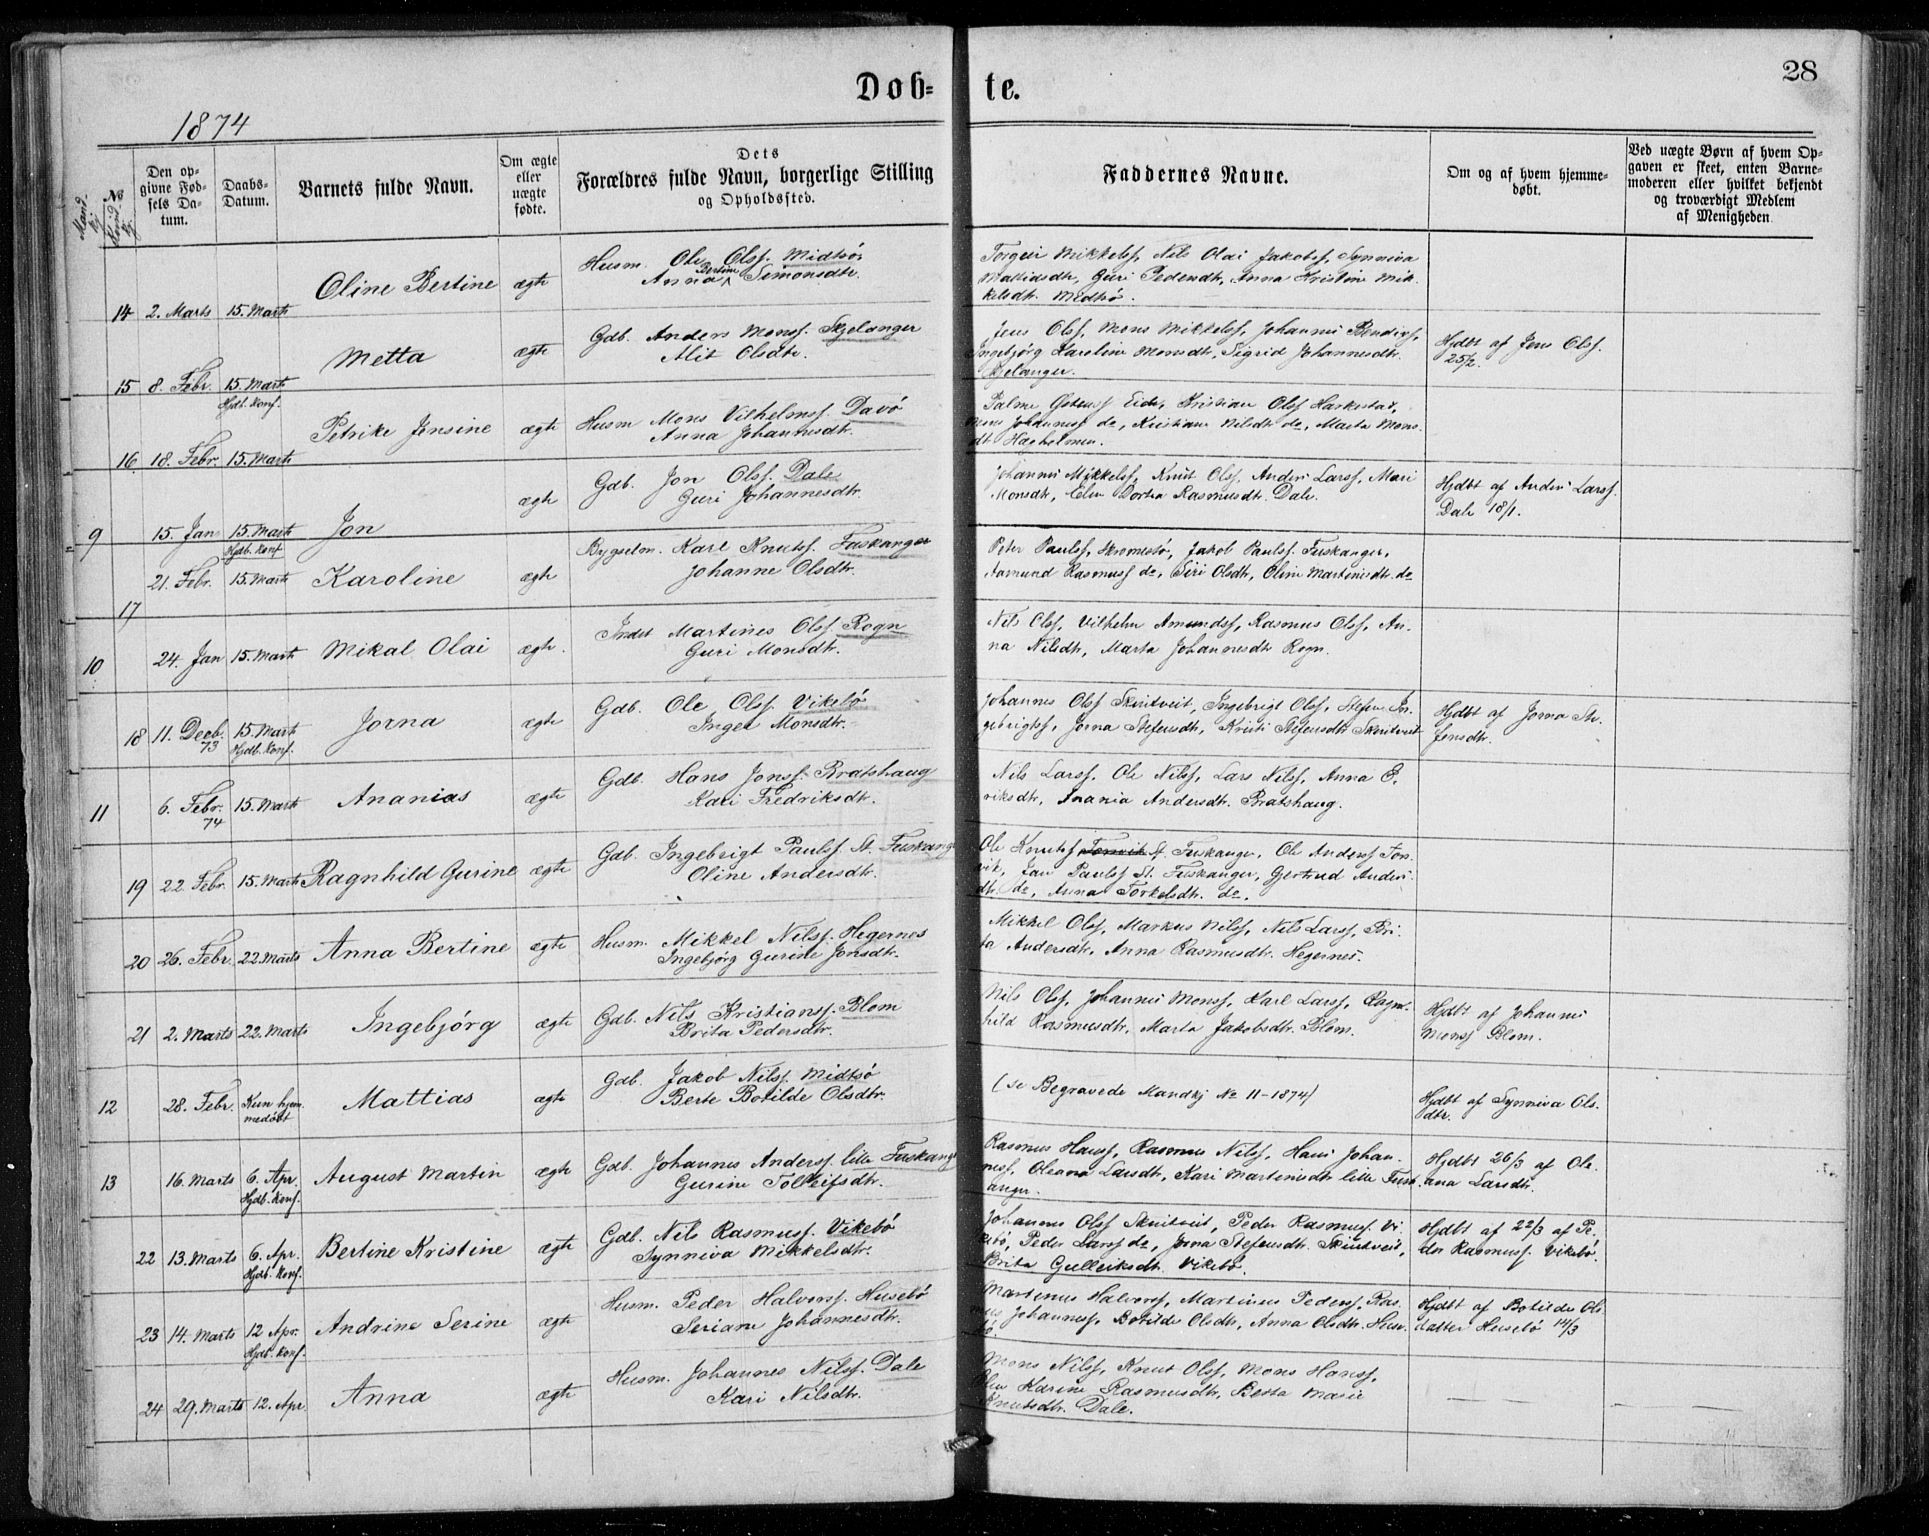 Døb=
te.
28
1874
Mand-
kj.
No
Kvind-
kj.
Den op-
givne Fød-
sels Da-
tum.
Daabs-
Datum.
Barnets fulde Navn.
Om ægte
eller
uægte
fødte.
Dets
Forældres fulde Navn, borgerlige Stilling
og Opholdssted.
Faddernes Navne.
Om og af hvem hjemme-
døbt.
Ved uægte Børn af hvem Op-
gaven er skeet, enten Barne-
moderen eller hvilket bekjendt
og troværdigt Medlem
af Menigheden.
14 2. Marts 15. Marts Oline Bertine ægte
Husm. Ole Olss. Midtsø
Anna Bertine Simonsdtr.
Torgeir Mikkelss, Nils Olai Jakobss, Synniva
Mattiasdtr, Guri Pedersdtr, Anna Kristine Mik-
kelsdtr. Midtsø.
15 8. Febr. 15. Marts Metta ægte
Hjdb. Konf.
Gdb. Anders Monss. Skjelanger
Alit Olsdtr.
Jens Olss, Mons Mikkelss, Johannes Bendixs,
Ingebjørg Karoline Monsdtr, Sigrid Johannesdtr.
Skjelanger.
Hjdbt af Jens Olss.
25/2.
16 18. Febr. 15. Marts Petrike Jensine ægte
Husm Mons Vilhelmss. Davø
Anna Johannesdtr.
Palme Eide, Kristian Olss Harkestad,
Mons Johanness do, Kristiane Nilsdtr do, Marta Mons-
dtr Hagholmen.
9 15. Jan 15. Marts Jon ægte
Hjdb. Konf
Gdb. Jon Olss. Dale
Guri Johannesdtr.
Johannes Mikkelss, Knut Olss, Anders Larss, Mari
Monsdtr, Elen Dortea Rasmusdtr. Dale.
Hjdbt af Anders Larss.
Dale 18/1.
17 21. Febr. 15. Marts Karoline ægte
Bygselm. Karl Knutss. Fuskanger
Johanne Olsdtr.
Peter Paulss, Skromestø, Jakob Paulss. Fuskanger,
Aamund Rasmuss do, Siri Olsdtr, Oline Martinesdtr. do
10 24. Jan 15. Marts Mikal Olai ægte.
Inderst Martines Olss Rogn
Guri Monsdtr.
Nils Olss, Vilhelm Amundss, Rasmus Olss, An-
na Nilsdtr, Marta Johannesdtr Rogn.
18 11. Decb. 73 15. Marts Jorna ægte
Hjdb. Konf.
Gdb. Ole Olss. Vikebø
Inger Monsdtr.
Johannes Olss Skurtveit, Ingebrigt Olss, Stefen In-
gebrigtss, Jorna Stefensdtr, Kristi Stefensdtr Skurtveit
Hjdbt af Jorna Ste-
fensdtr.
11 6. Febr. 74 15. Marts Ananias ægte
Gdb. Hans Jonss. Bratshaug
Kari Fredriksdtr.
Nils Larss. Ole Nilss, Lars Nilss, Anna E-
riksdtr, Anania Andersdtr. Bratshaug.
19 22 Febr. 15. Marts Ragnhild Gurine ægte
Gdb. Ingebrigt Paulss. St. Fuskanger
Oline Andersdtr.
Ole Knutss Tonvik St. Fuskanger, Ole Anderss Ton-
vik, Jan Paulss St. Fuskanger, Gertrud Anders-
dtr. do, Anna Torkelsdtr. do.
20 26. Febr. 22. Marts Anna Bertine ægte
Husm. Mikkel Nilss. Hegernes
Ingebjørg Gurine Jonsdtr.
Mikkel Olss, Markus Nilss, Nils Larss, Bri-
ta Andersdtr, Anna Rasmusdtr. Hegernes.
21 2. Marts 22. Marts Ingebjørg ægte
Gdb. Nils Kristianss. Blom
Brita Pedersdtr.
Nils Olss, Johannes Monss, Karl Larss, Ragn-
hild Rasmusdtr, Marta Jakobsdtr. Blom.
Hjdbt af Johannes
Monss Blom.
12 28. Febr. Kun hjem- Mattias ægte
medøbt
Gdb. Jakob Nilss. Midtsø
Berte Botilde Olsdtr.
(se Begravede Mandkj No 11-1874)
Hjdbt af Synneva Ols-
dtr.
13 16. Marts 6. Apr. August Martin ægte
Hjdb. Konf.
Gdb. Johannes Anderss. lille Fuskanger
Gurine Tolleifsdtr.
Rasmus Hanss, Rasmus Nilss, Hans Johan-
ness, Oleana Larsdtr, Kari Martinesdtr lille Fusk-
anger.
Hjdbt 26/3 af Ole-
ana Larsdtr.
22 13. Marts 6. Apr. Bertine Kristine ægte
Hjdb. Konf.
Gdb. Nils Rasmuss. Vikebø
Synniva Mikkelsdtr.
Johannes Olss Skurtveit, Peder Rasmuss. Vi-
kebø, Peder Larss do, Jorna Stefensdtr. Skurtveit,
Brita Gulleiksdtr. Vikebø.
Hjdbt af 22/3 af Pe-
der Rasmuss. Vikebø.
23 14. Marts 12 Apr. Andrine Serine ægte
Hjdb. Konf.
Husm. Peder Halvorss. Husebø
Seriane Johannesdtr.
Martinus Halvorss, Martinus Pederss, Ras-
mus Johanness, Botilde Olsdtr, Anna Olsdtr. Huse-
bø.
Hjdbt af Botilde Ols-
datter Husebø 14/3
24 29. Marts 12. Apr Anna ægte
Husm. Johannes Nilss. Dale
Kari Nilsdtr.
Mons Nilss, Knut Olss, Mons Hanss,
Elen Karine Rasmusdtr, Berta Marie
Knutsdtr. Dale.